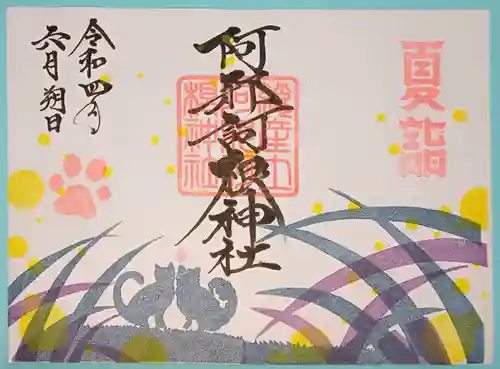 夏詣
阿邪訶根神社
令和四年
六月朔日